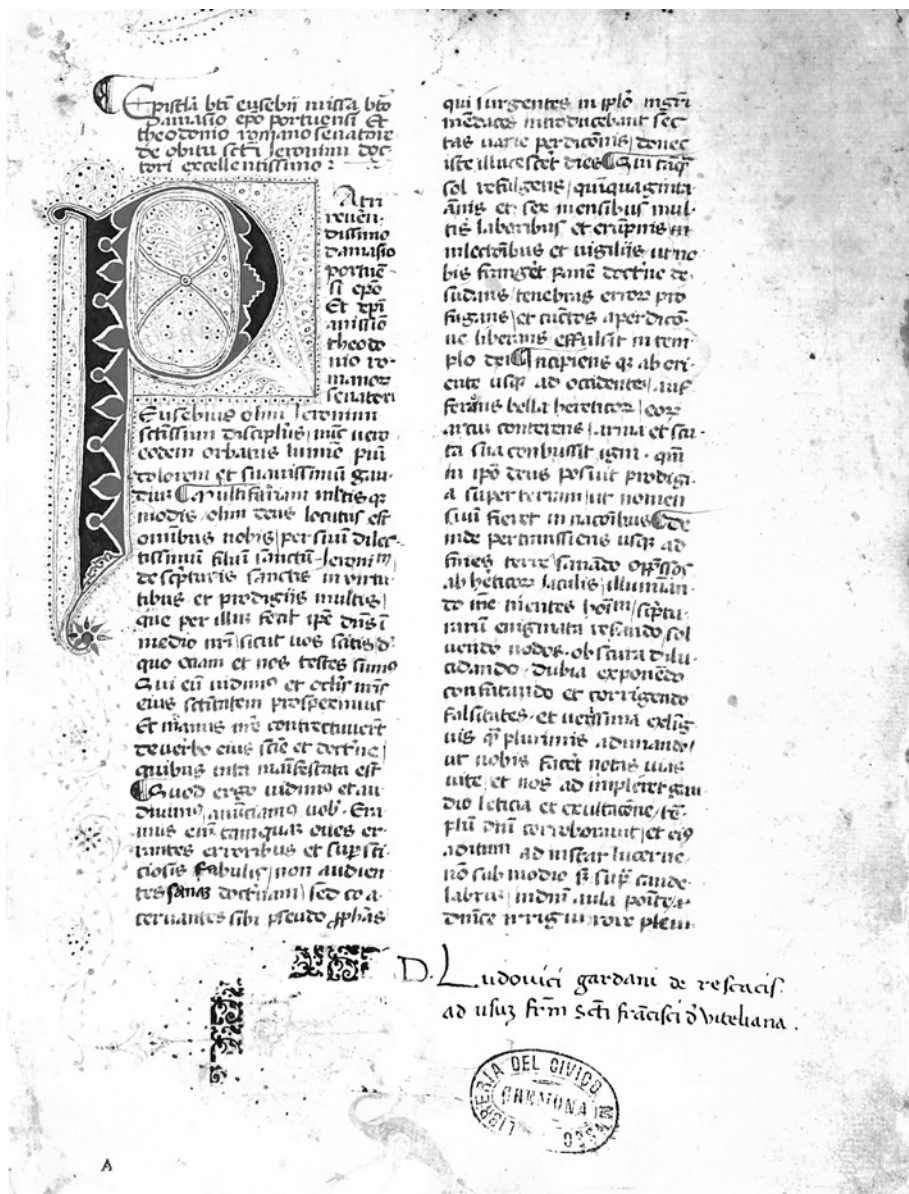 Epistla bti eusebij missa bto
Damasio epo portuensi Et
theodonio romano senatore
de obitu scti Jeronimi doc
tori excellentissimo :
P
Atri
reven-
dissimo
damasio
portuē-
si epo
Et xpi
anissīo
theodo
nio ro-
manoꝝ
senatori
Eusebius olim Jeronimi
sctissimi discipl̄us, nūc vero
eodem orbatus lumīe piū
dolorem et suavissimū gau
diuꝫ Multifariam multis qꝫ
modis olim deus locutus est
omībus nobis per suū dilec-
tissimū filiū sanctū Jeronimᵐ
de scpturis sanctis in virtu
tibus et prodigijs multis
que per illuꝫ fecit ip̄e dn̄s ī
medio nr̄i sicut vos scitis d'
quo etiam et nos testes sumꝰ
Qui eū vidimꝰ et oclis nr̄is
eius sctitatem prospeximus
Et manus nr̄e contrectavert̄
de verbo eius scie et doct'ne
quibus vita manifestata est
Quod ergo vidimꝰ et au
divimꝰ anūciamꝰ vob. Era
mus eni tamquaꝫ oves er
rantes erroribus et supsti
ciosis fabulis, non audien
tes sanaꝫ doct'nam, sed co a
cervantes sibi pseudo pphās
qui surgentes in iplō
mēdaces introducebant sec
tas varie perdicōnis, donec
iste illucesc̄et dies Qui tāqꝫ
sol refulgens, quinquaginta
annis et sex mensibus mul
tis laboribus et erūpnis in
in lectōibus et vigilijs, ut no
bis frang'et panē doct'ne de
sudans, tenebras erroꝝ pro
fugans, et cūctos a perdicō-
ne liberans effulsit in tem
plo dei Incipiens qꝫ ab ori
ente usqꝫ ad occidentē, auf
ferens bella hereticoꝝ, eoꝝ
arcus conterens, arma et scu
ta sua combussit igni. qm̄
in ipō deus posuit prodigi
a super terram, ut nomen
suū fieret in nacōibus De
inde pertransiens usqꝫ ad
fines terre sanādo offēsos
ab hēticoꝝ iaculis, illumināɴ
do īne mentes hoīm, scptu
rarū enigmata resando sol
vendo nodos. obscura dilu
cidando. dubia exponēdo
confutando et corrigendo
falsitates. et verissima ex līg
vis qꝫ plurimis adunando,
ut nobis facēt notas vias
vite, et nos ad impleret gau
dio leticia et exultacōne, tē-
plū dnī corroboravit, et eiꝰ
aditum ad instar lucerne
nō sub modio sꝫ sup cande
labruꝫ, in dnī aula ponēs
rore plen
D. Ludovici gardani de rescacis.
ad usuꝫ frm̄ Scti francisci d' Viteliana.
LIBRERIA DEL CIVICO MUSEO
CREMONA
A